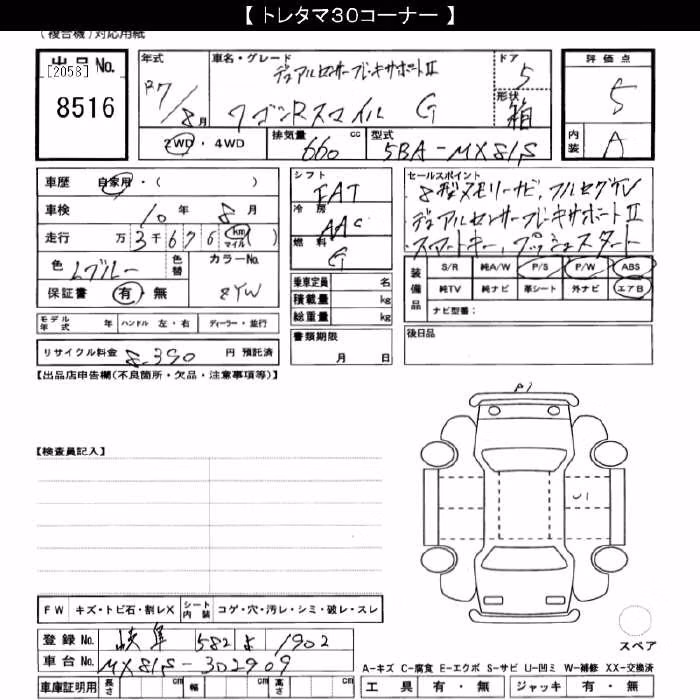 【 トレタマ30コーナー 】
(複合機)対応用紙
出品 No.
[2058]
8516
年式
R7/8月
車名・グレード
デュアルセンサーブレーキサポートⅡ
ワゴンRスマイル G
ドア
5
形状
箱
評価点
5
内装
A
2WD ・ 4WD
排気量
660 cc
型式
5BA-MX81S
車歴 自家用・( )
車検 10年 8月
走行 万 3千676 km マイル ( )
色 Lブルー
色替
カラーNo.
ZYW
保証書 有・無
シフト
FAT
冷房
AAC
燃料
G
乗車定員 名
積載量 kg
総重量 kg
書類期限
月 日
セールスポイント
8型メモリーナビ、フルセグTV
デュアルセンサーブレーキサポートⅡ
スマートキー、プッシュスタート
装備品
S/R 純A/W P/S P/W ABS
純TV 純ナビ 革シート 外ナビ エアB
ナビ型番:
後日品
モデル年式 年 ハンドル 左・右 ディーラー・並行
リサイクル料金 8,390 円 預託済
【出品店申告欄(不良箇所・欠品・注意事項等)】
【検査員記入】
U1
FW キズ・トビ石・割レX シート内装 コゲ・穴・汚レ・シミ・破レ・スレ
登録 No. 岐阜 582 よ 1902
車台 No. MX81S-302909
車庫証明用 長さ cm 幅 cm 高さ cm
スペア
A-キズ C-腐食 E-エクボ S-サビ U-凹ミ W-補修 XX-交換済
工具 有・無 ジャッキ 有・無